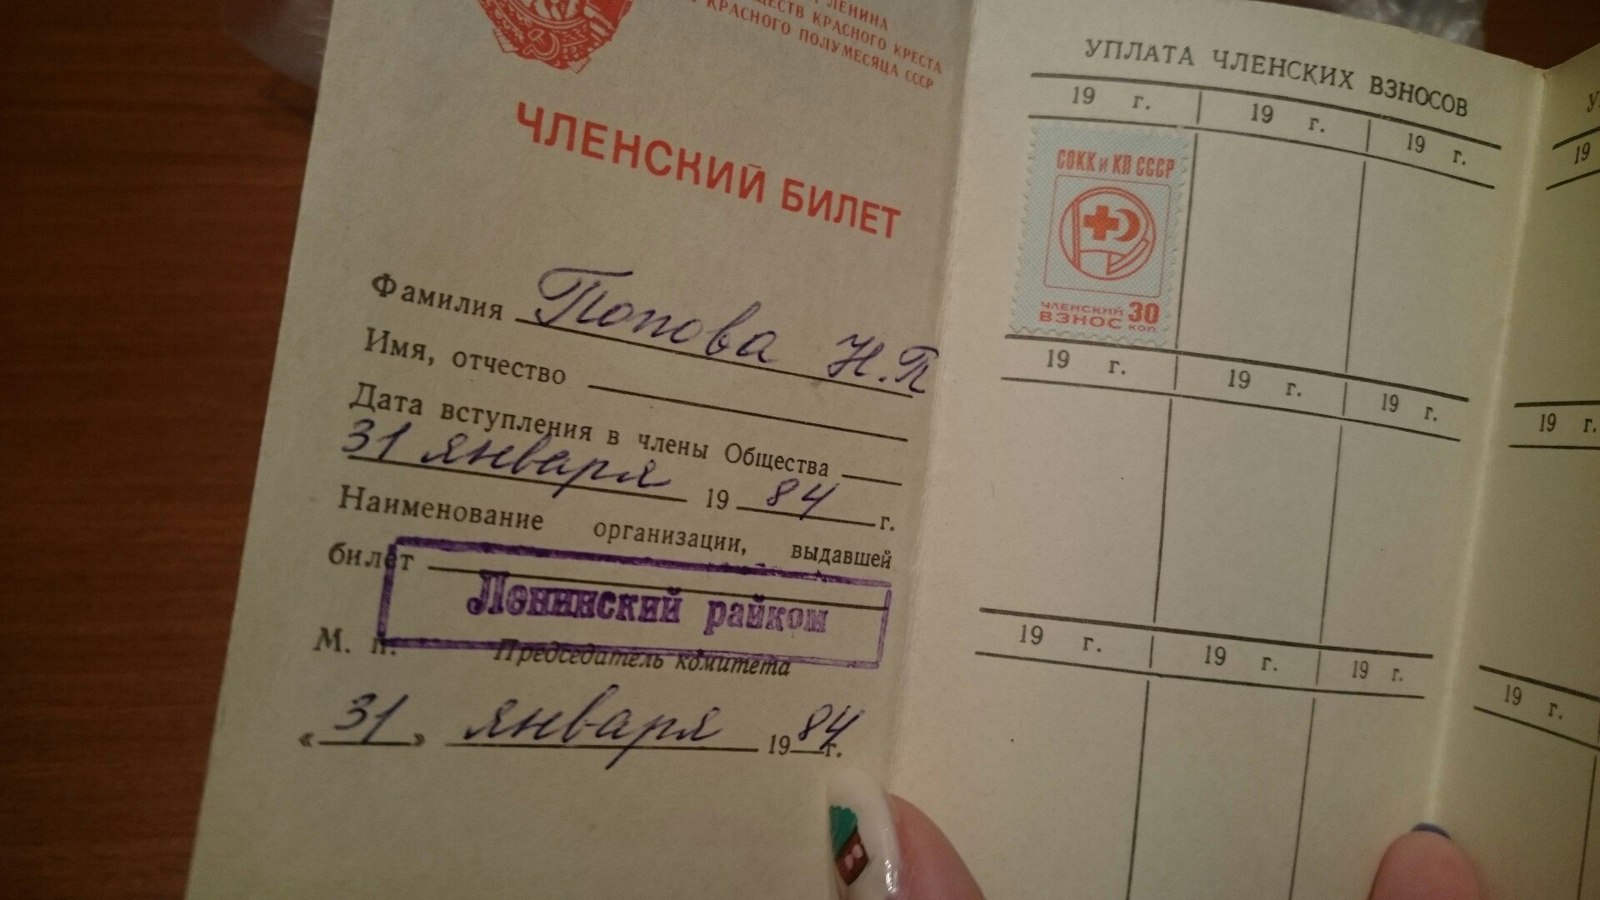 ЛЕНИНА
КРАСНОГО КРЕСТА
КРАСНОГО ПОЛУМЕСЯЦА СССР
ЧЛЕНСКИЙ БИЛЕТ
Фамилия Попова Н.П
Имя, отчество
Дата вступления в члены Общества
31 января 1984 г.
Наименование организации, выдавшей
билет
Ленинский райком
М. п. Председатель комитета
«31» января 1984 г.
УПЛАТА ЧЛЕНСКИХ ВЗНОСОВ
19 г. 19 г. 19 г.
СОКК и КП СССР
ЧЛЕНСКИЙ 30
ВЗНОС КОП.
19 г. 19 г. 19 г.
19 г. 19 г. 19 г.
19
19 г.
19 г.